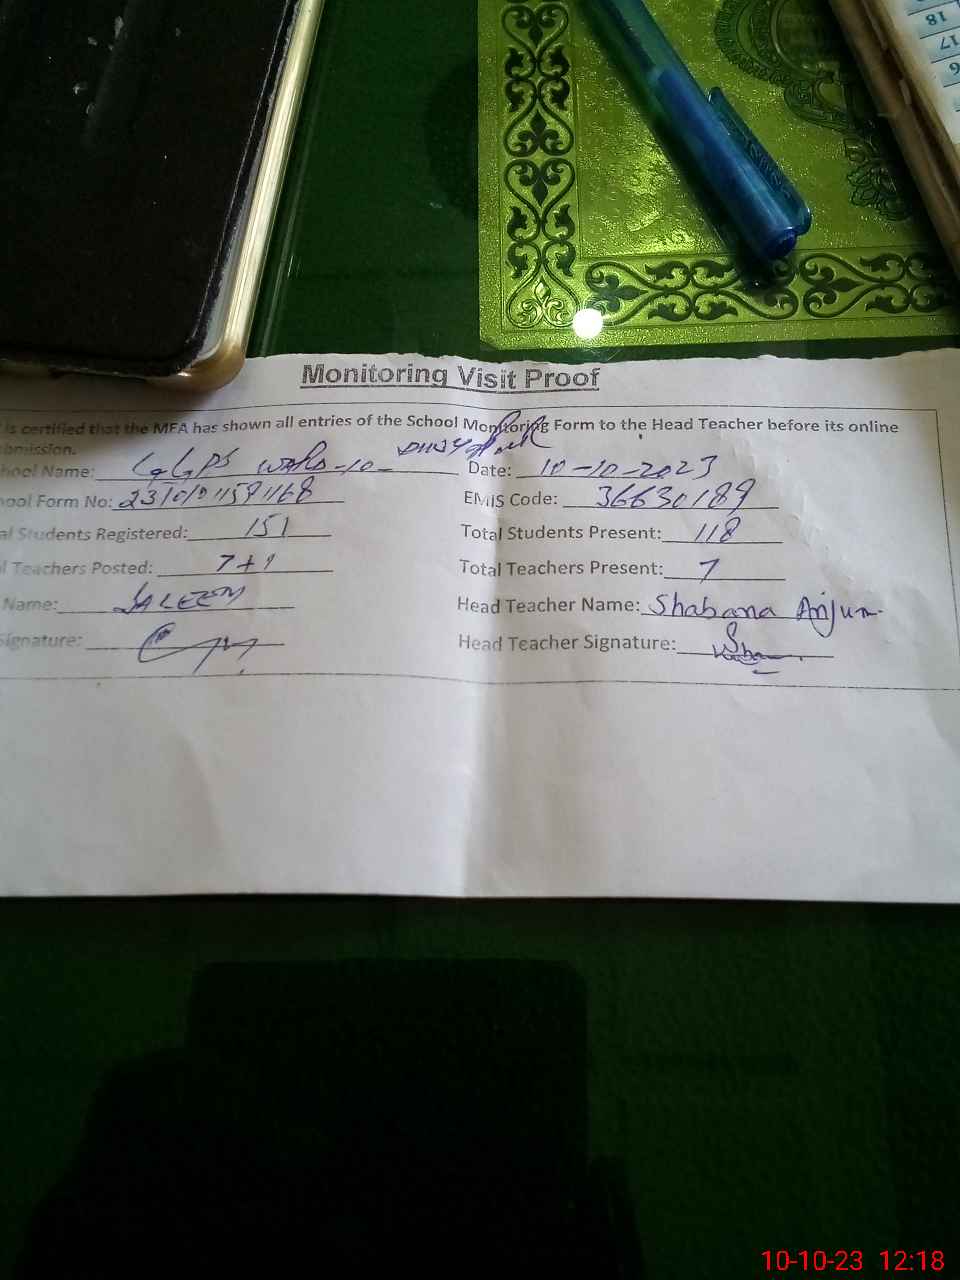 18
17
Monitoring Visit Proof
is certified that the MFA has shown all entries of the School Monitoring Form to the Head Teacher before its online
bmission.
hool Name: GGPS WARD-10- Date: 10-10-2023
ool Form No: EMIS Code: 36630189
al Students Registered: 151 Total Students Present: 118
l Teachers Posted: 7+1 Total Teachers Present: 7
Name: SALEEM Head Teacher Name: Shabana Anjum
Signature: Head Teacher Signature:
10-10-23 12:18